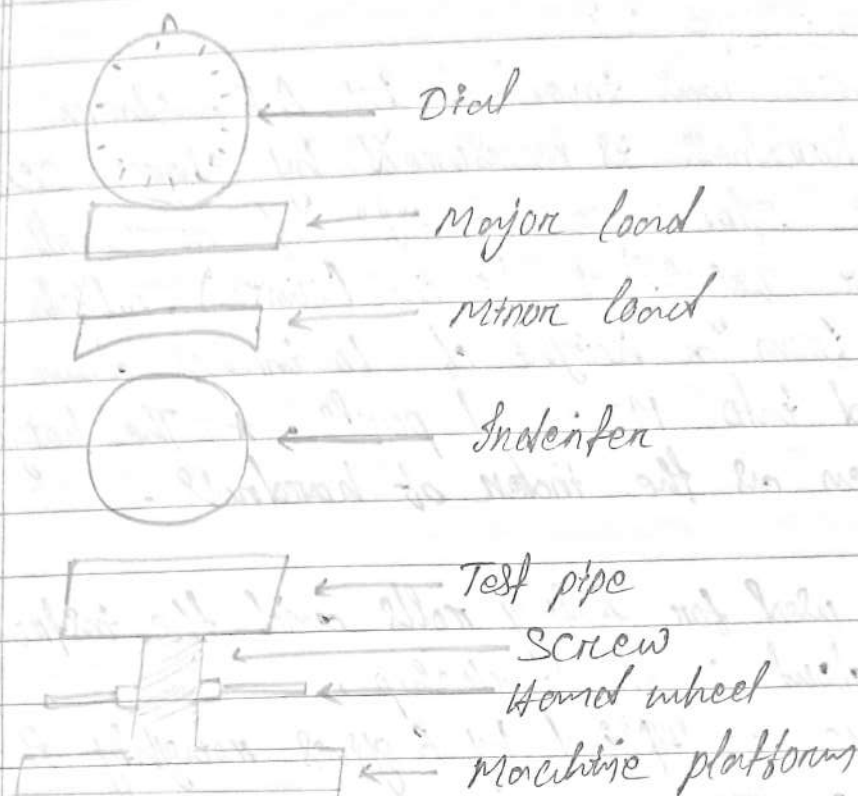 Dial
Major load
Minor load
Indenter
Test pipe
Screw
Hand wheel
Machine platform